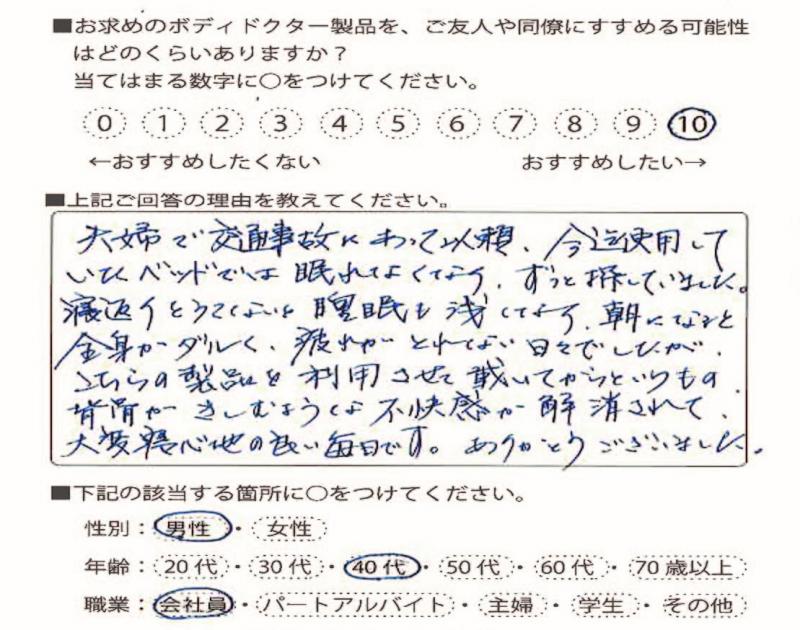 ■お求めのボディドクター製品を、ご友人や同僚にすすめる可能性
はどのくらいありますか?
当てはまる数字に○をつけてください。
0 1 2 3 4 5 6 7 8 9 10
←おすすめしたくない おすすめしたい→
■上記ご回答の理由を教えてください。
夫婦で交通事故にあって以頼、今迄使用して
いたベッドでは眠れなくなり、ずっと探していました。
寝返りをうてないと睡眠も浅くなり、朝になると
全身がダルく、疲れがとれない日々でしたが、
こちらの製品を利用させて戴いてからというもの
背骨がきしむような不快感が解消されて、
大変寝心地の良い毎日です。ありがとうございました。
■下記の該当する箇所に○をつけてください。
性別:男性・女性
年齢:20代・30代・40代・50代・60代・70歳以上
職業:会社員・パートアルバイト・主婦・学生・その他